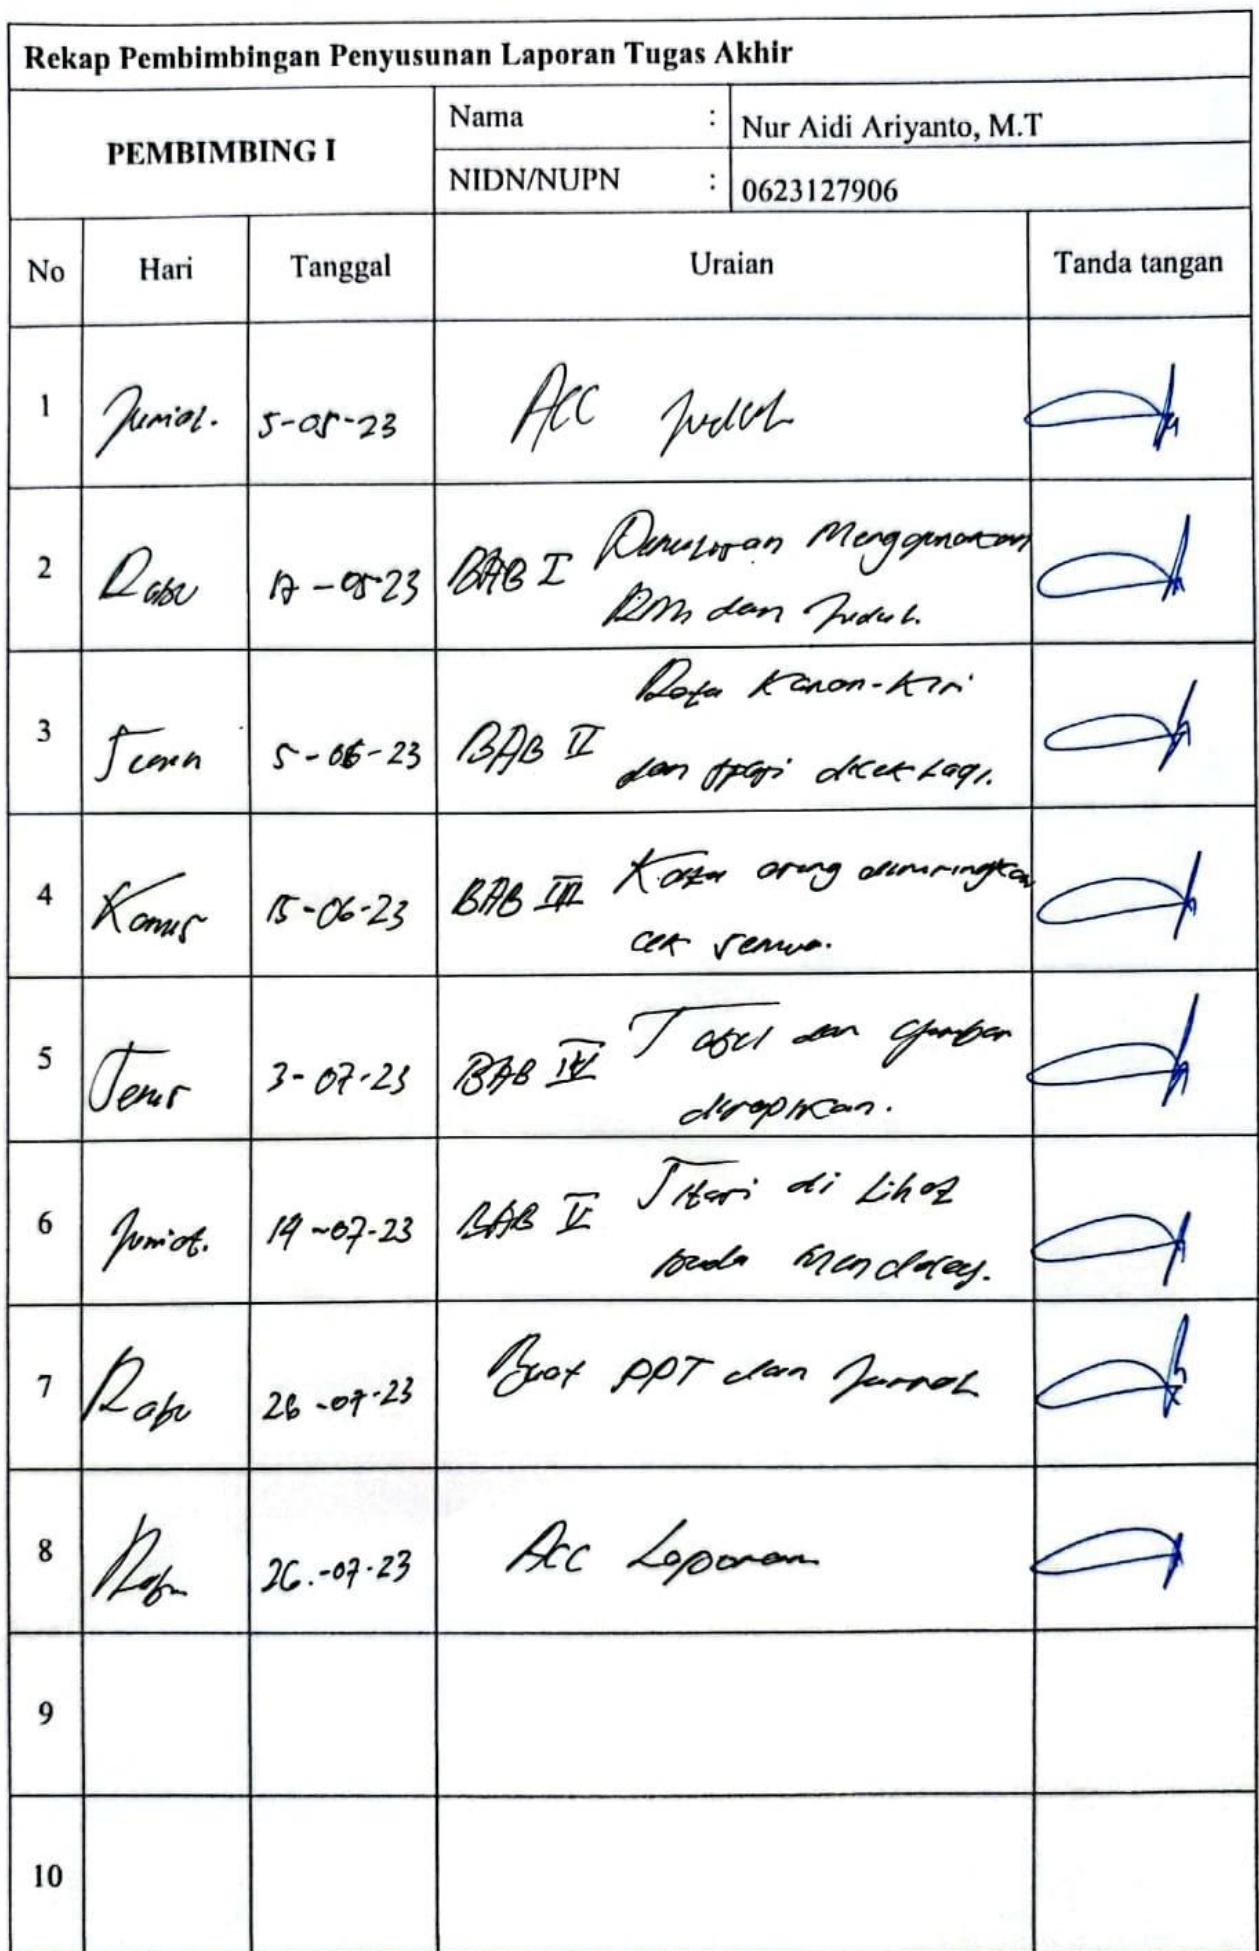 Rekap Pembimbingan Penyusunan Laporan Tugas Akhir
PEMBIMBING I
Nama : Nur Aidi Ariyanto, M.T
NIDN/NUPN : 0623127906
No Hari Tanggal Uraian Tanda tangan
1 Jumat. 5-05-23 ACC Judul
2 Rabu 17-05-23 BAB I Penulisan Menggunakan
dan Judul.
3 Senin 5-06-23 BAB II Rata Kanan-Kiri
dan spasi dicek lagi.
4 Kamis 15-06-23 BAB III Kata asing dimiringkan
cek semua.
5 Senin 3-07-23 BAB IV Tabel dan Gambar
dirapikan.
6 Jumat. 14-07-23 BAB V di Lihat
7 Rabu 26-07-23 Buat PPT dan Jurnal
8 Rabu 26.-07-23 Acc Laporan
9
10